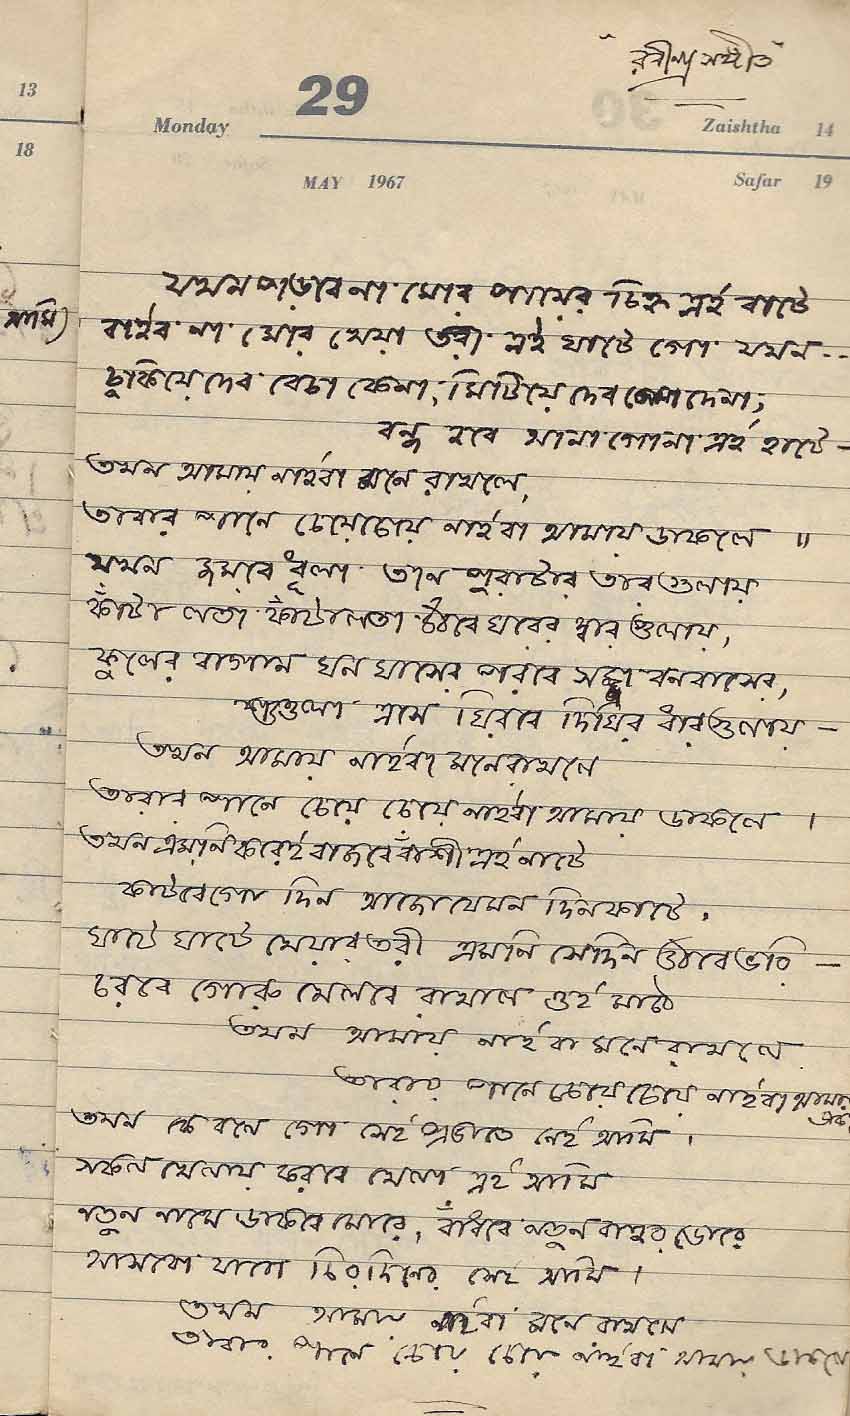 "রবীন্দ্র সঙ্গীত"
13
29
Monday
Zaishtha 14
18
MAY 1967
Safar 19
যখন পড়বে না মোর পায়ের চিহ্ন এই বাটে
আমি)
বাইব না মোর খেয়া তরী এই ঘাটে গো যখন --
চুকিয়ে দেব বেচা কেনা, মিটিয়ে দেব লেনা দেনা,
বন্ধ হবে আনা গোনা এই হাটে -
তখন আমায় নাইবা মনে রাখলে,
তারার পানে চেয়ে চেয়ে নাইবা আমায় ডাকলে ॥
যখন জমবে ধূলা তানপুরাটার তারগুলায়
কাঁটা লতা কাঁটালতা উঠবে ঘরের দ্বার গুলায়,
ফুলের বাগান ঘন ঘাসের পরবে সজ্জা বনবাসের,
শ্যাওলা এসে ঘিরবে দিঘির ধারগুলায় -
তখন আমায় নাইবা মনে রাখলে
তারার পানে চেয়ে চেয়ে নাইবা আমায় ডাকলে ।
তখন এমনি করেই বাজবে বাঁশী এই নাটে
কাটবে গো দিন আজো যেমন দিন কাটে,
ঘাটে ঘাটে খেয়ার তরী এমনি সেদিন উঠবে ভরি -
চরবে গোরু খেলবে রাখাল ওই মাঠে
তখন আমায় নাইবা মনে রাখলে
তারার পানে চেয়ে চেয়ে নাইবা আমায়
তখন কে বলে গো সেই প্রভাতে নেই আমি ।
সকল খেলায় করবে খেলা এই আমি
নতুন নামে ডাকবে মোরে, বাঁধবে নতুন বাহুর ডোরে
আসবো যাবো চিরদিনের সেই আমি ।
তখন আমায় নাইবা মনে রাখলে
তারার পানে চেয়ে চেয়ে নাইবা আমায় ডাকলে